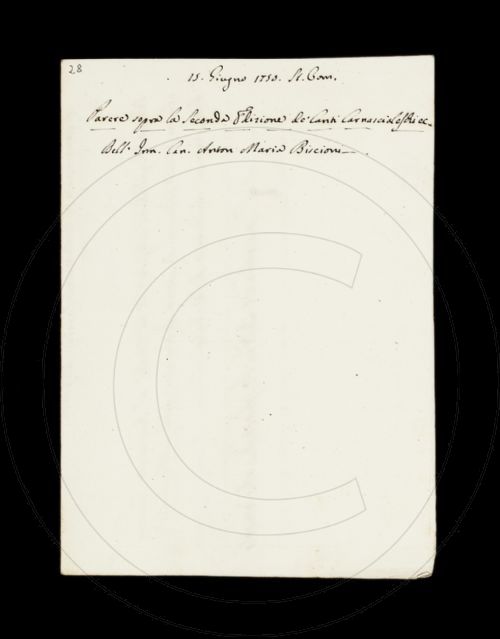 28
15. Giugno 1750. St. Com.
Parere sopra la Seconda Edizione de' Canti Carnascialeschi ec.
Dell' Canon. Anton Maria Biscioni